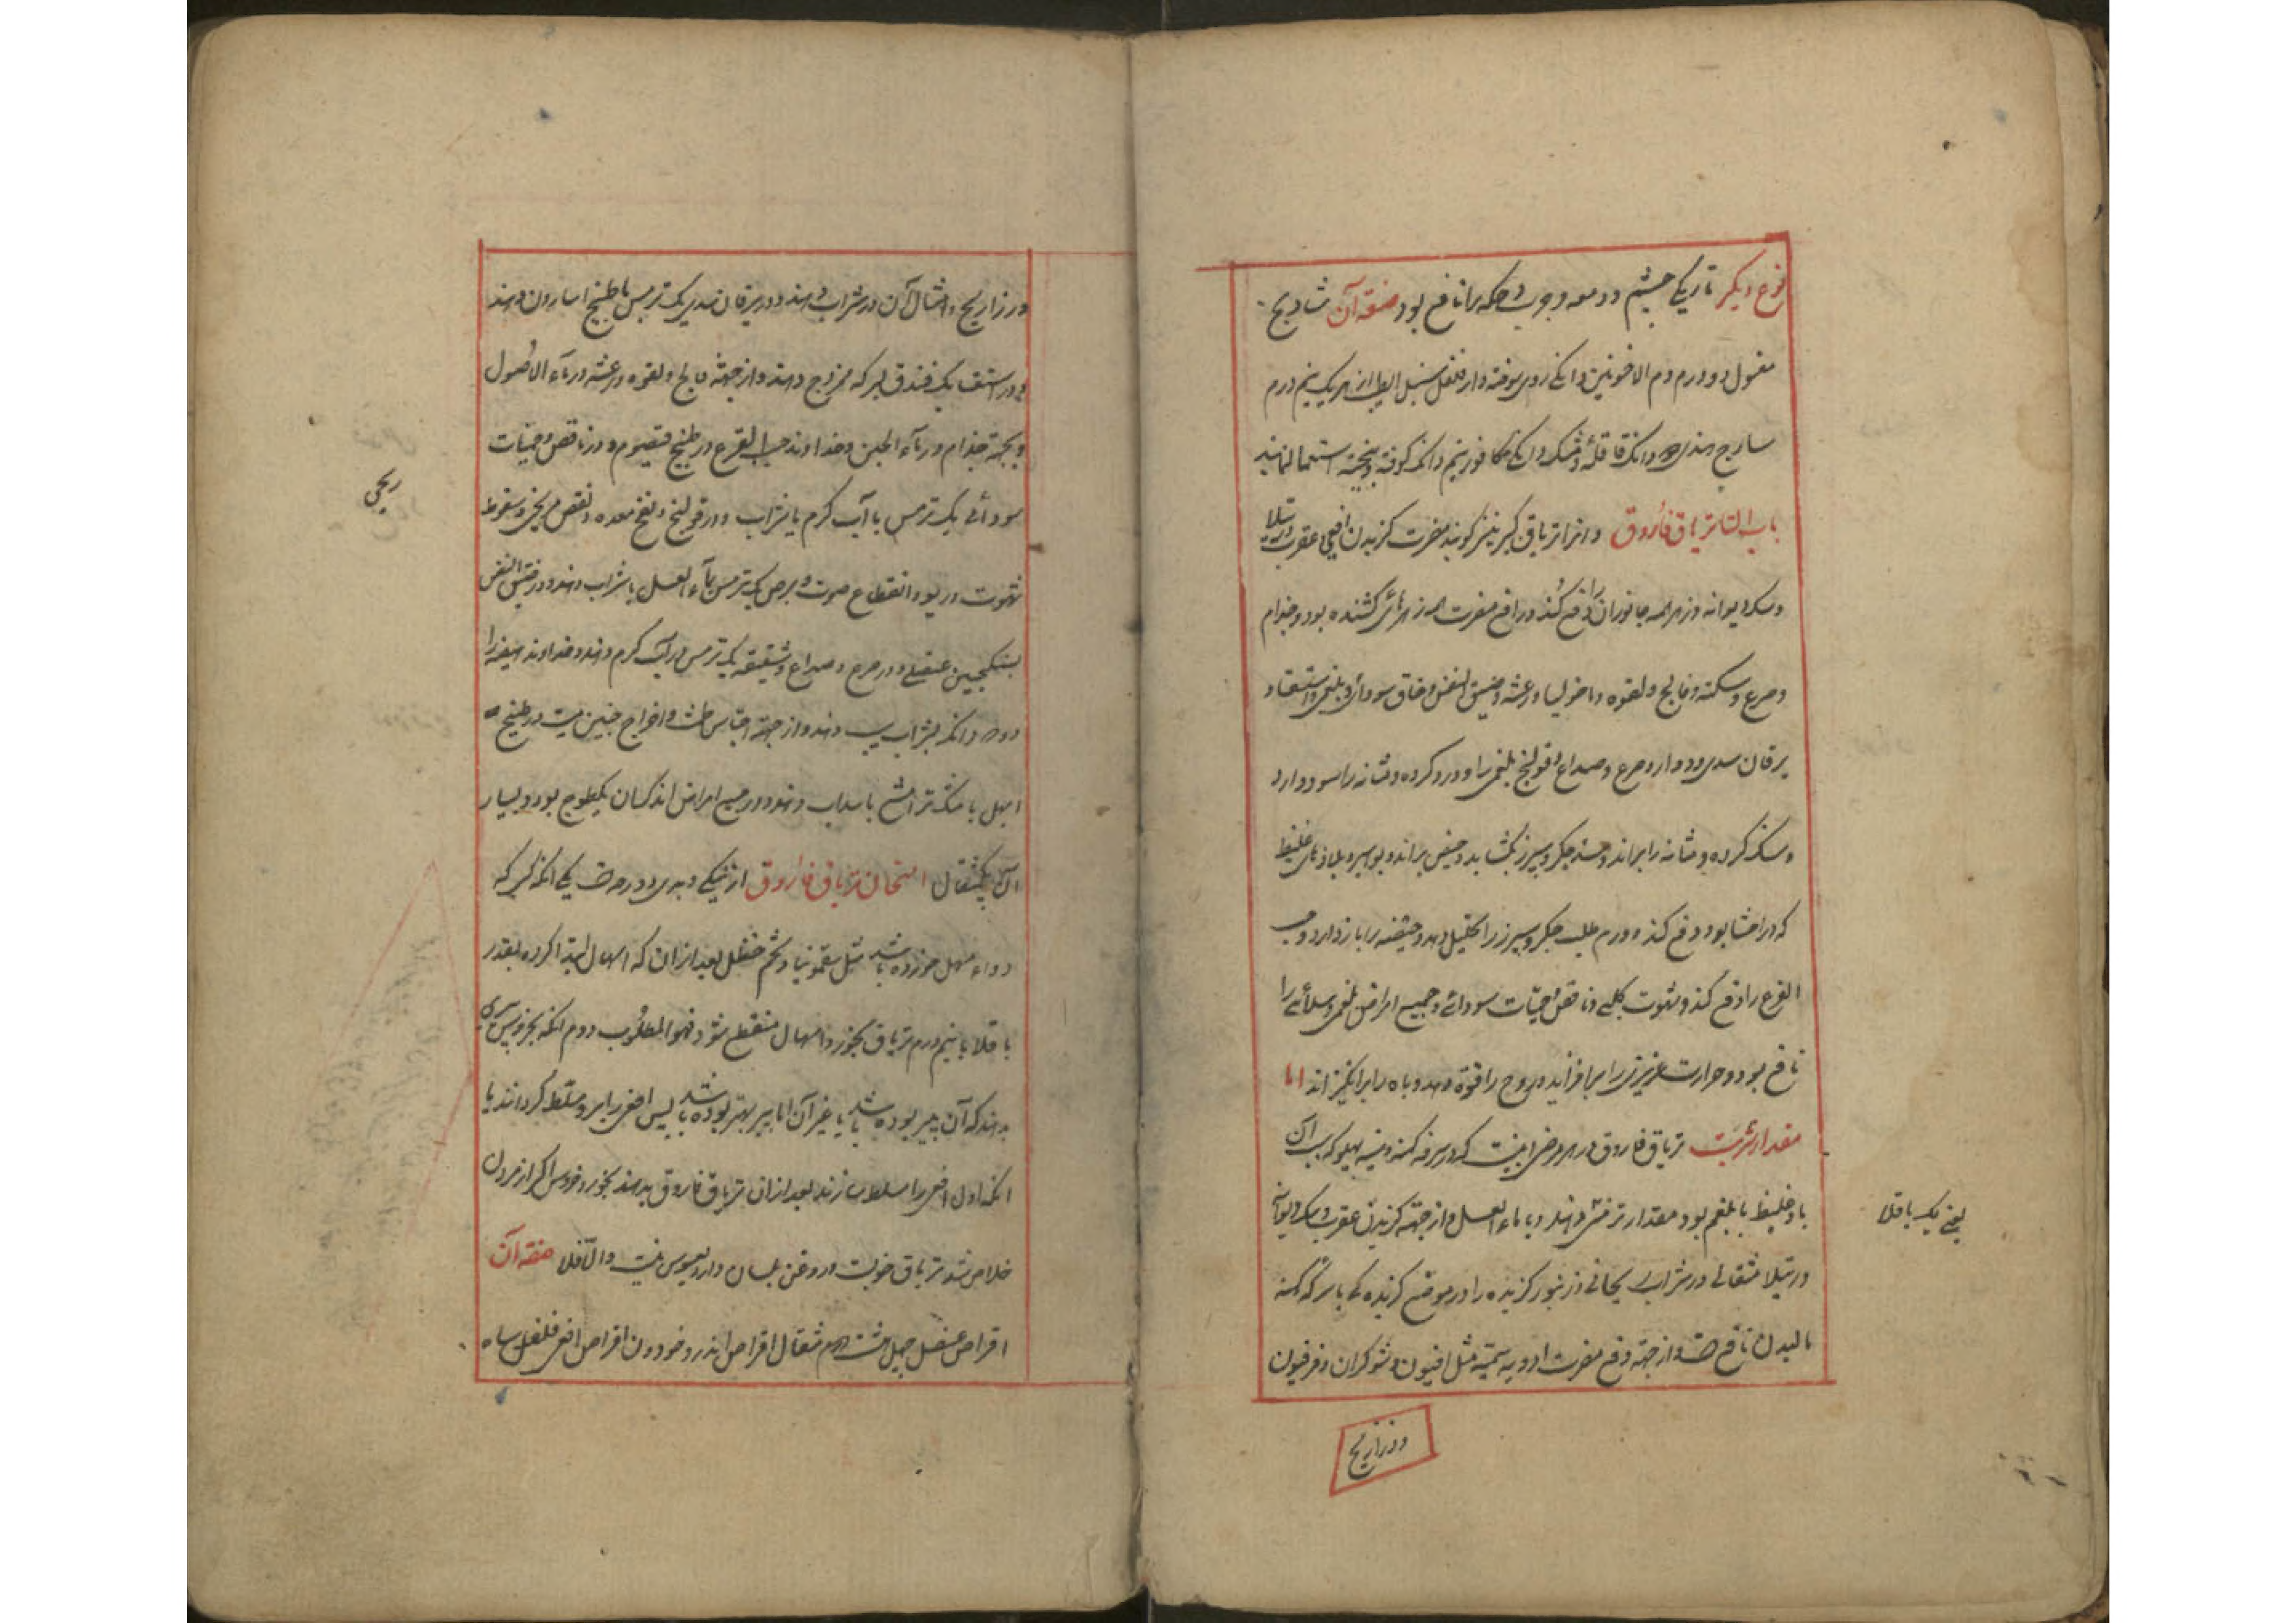 نوع دیگر تاریکی چشم ودمعه وجرب وحکه را نافع بود صفة آن شادنج
مغسول دو درم دم الاخوین دانکی روی سوخته دارفلفل سنبل الطیب از هریک نیم درم
سادج هندی دانک قاقله ومشک دانکی کافور نیم دانک کوفته وبیخته استعمال نمایند
باب التا تریاق فاروق وانرا تریاق کبیر نیز کویند مضرت کزیدن افعی وعقرب ورتیلا
وسک دیوانه وزهر همه جانوران را دفع کند ودافع مضرت همه زهرهای کشنده بود وجذام
وصرع وسکته وفالج ولقوه وماخولیا ورعشه وضیق النفس وخناق سودائی وبلغمی واستسقا و
یرقان سدی ودوار وصرع وصداع وقولنج بلغمی را ودرد کرده ومثانه را سود دارد
وسنک کرده ومثانه را براند وسده جکر وسپرز بکشاید وحیض براند وبواسیر وبادهای غلیظ
که در احشا بود دفع کند وورم صلب جکر وسپرز را تحلیل دهد وهیضه را باز دارد وحب
القرع را دفع کند وشهوت کلبی ونافض وحمیات سودائی وجمیع امراض بلغمی وسودائی را
نافع بود وحرارت غریزی را برافزاید وروح را قوة دهد وباه را برانکیزاند اما
مقدار شربت تریاق فاروق در هر مرض اینست که در سرفه کهنه وسینه وپهلو که سبب آن
باد غلیظ یا بلغم بود مقدار ترمسی دهند با ماء العسل واز جهة کزیدن عقرب وسک دیوانه
یعنی یک باقلا
ورتیلا مثقالی در شراب ریحانی وزنبور کزیده را در موضع کزیدکی با سرکه کهنه
مالیدن نافع است واز جهة دفع مضرت ادویه سمیه مثل افیون وشوکران وفرفیون
وذراریح
وذراریح وامثال آن در شراب دهند ودر یرقان سدی یک ترمس با طبیخ اسارون دهند
ودر استسقا یک فندق بسرکه ممزوج دهند واز جهة فالج ولقوه ورعشه در ماء الاصول
وبجهة جذام در ماء الجبن وخداوند حب القرع در طبیخ قیصوم ودر نافض وحمیات
سودائی یک ترمس با آب کرم یا شراب ودر قولنج ونفخ معده ومغص ریحی وسقوط
ریحی
شهوت وربو وانقطاع صوت وبرص یک ترمس بماء العسل یا شراب دهند ودر ضیق النفس
بسکنجبین عنصلی ودر صرع وصداع وشقیقه یک ترمس در آب کرم دهند وخداوند هیضه را
دو دانک بشراب سیب دهند واز جهة احتباس طمث واخراج جنین میت در طبیخ
ابهل یا مشکترامشیع یا سداب دهند ودر جمیع امراض اندک آن یک طسوج بود وبسیار
آن یکمثقال امتحان تریاق فاروق از نیکی وبدی دو وجه است یکی آنکه کسی که
دواء مسهل خورده باشد مثل سقمونیا وشحم حنظل بعد از آن که اسهال ابتدا کرده بقدر
باقلا یا نیم درم تریاق بخورد واسهال منقطع شود فهو المطلوب دوم آنکه بخروس بری
بدهند که آن پیر بوده باشد یا غیر آن اما پیر بهتر بوده باشد پس افعی را برو مسلط کردانند یا
آنکه اول افعی را مسلط سازند بعد از آن تریاق فاروق بدهند بخورد خروس اکر از مردن
خلاص شد تریاق خوبست وروغن بلسان دارد مغشوش نیست والا فلا صفة آن
اقراص عنصل چهل هشت مثقال اقراص اندروخودون اقراص افعی فلفل سیاه